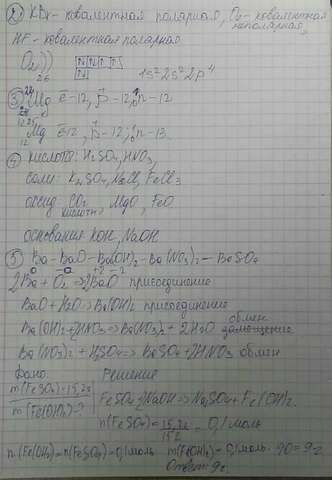 ② KBr - ковалентная полярная, O₂ - ковалентная неполярная,
HF - ковалентная полярная
O₈))
26
1s²2s²2p⁴
③ ²⁴Mg ē-12, p-12, n-12
²⁵Mg ē12, p-12, n-13
12
④ кислота: H₂SO₄, HNO₃,
соли: K₂SO₄, NaCl, FeCl₃
оксид CO₂ MgO, FeO
кислотн.
основания KOH, NaOH
⑤ Ba - BaO - Ba(OH)₂ - Ba(NO₃)₂ - BaSO₄
2Ba + O₂ → 2BaO присоединение
BaO + H₂O → Ba(OH)₂ присоединение
обмен
Ba(OH)₂ + 2HNO₃ → Ba(NO₃)₂ + 2H₂O замощение
Ba(NO₃)₂ + H₂SO₄ → BaSO₄ + 2HNO₃ обмен
Дано: Решение
m(FeSO₄) = 15,2г
m(Fe(OH)₂) - ?
FeSO₄ + 2NaOH → Na₂SO₄ + Fe(OH)₂
n(FeSO₄) = 15,2г/152 = 0,1 моль
n(Fe(OH)₂) = n(FeSO₄) = 0,1 моль m(Fe(OH)₂) = 0,1 моль · 90 = 9г.
Ответ: 9г.